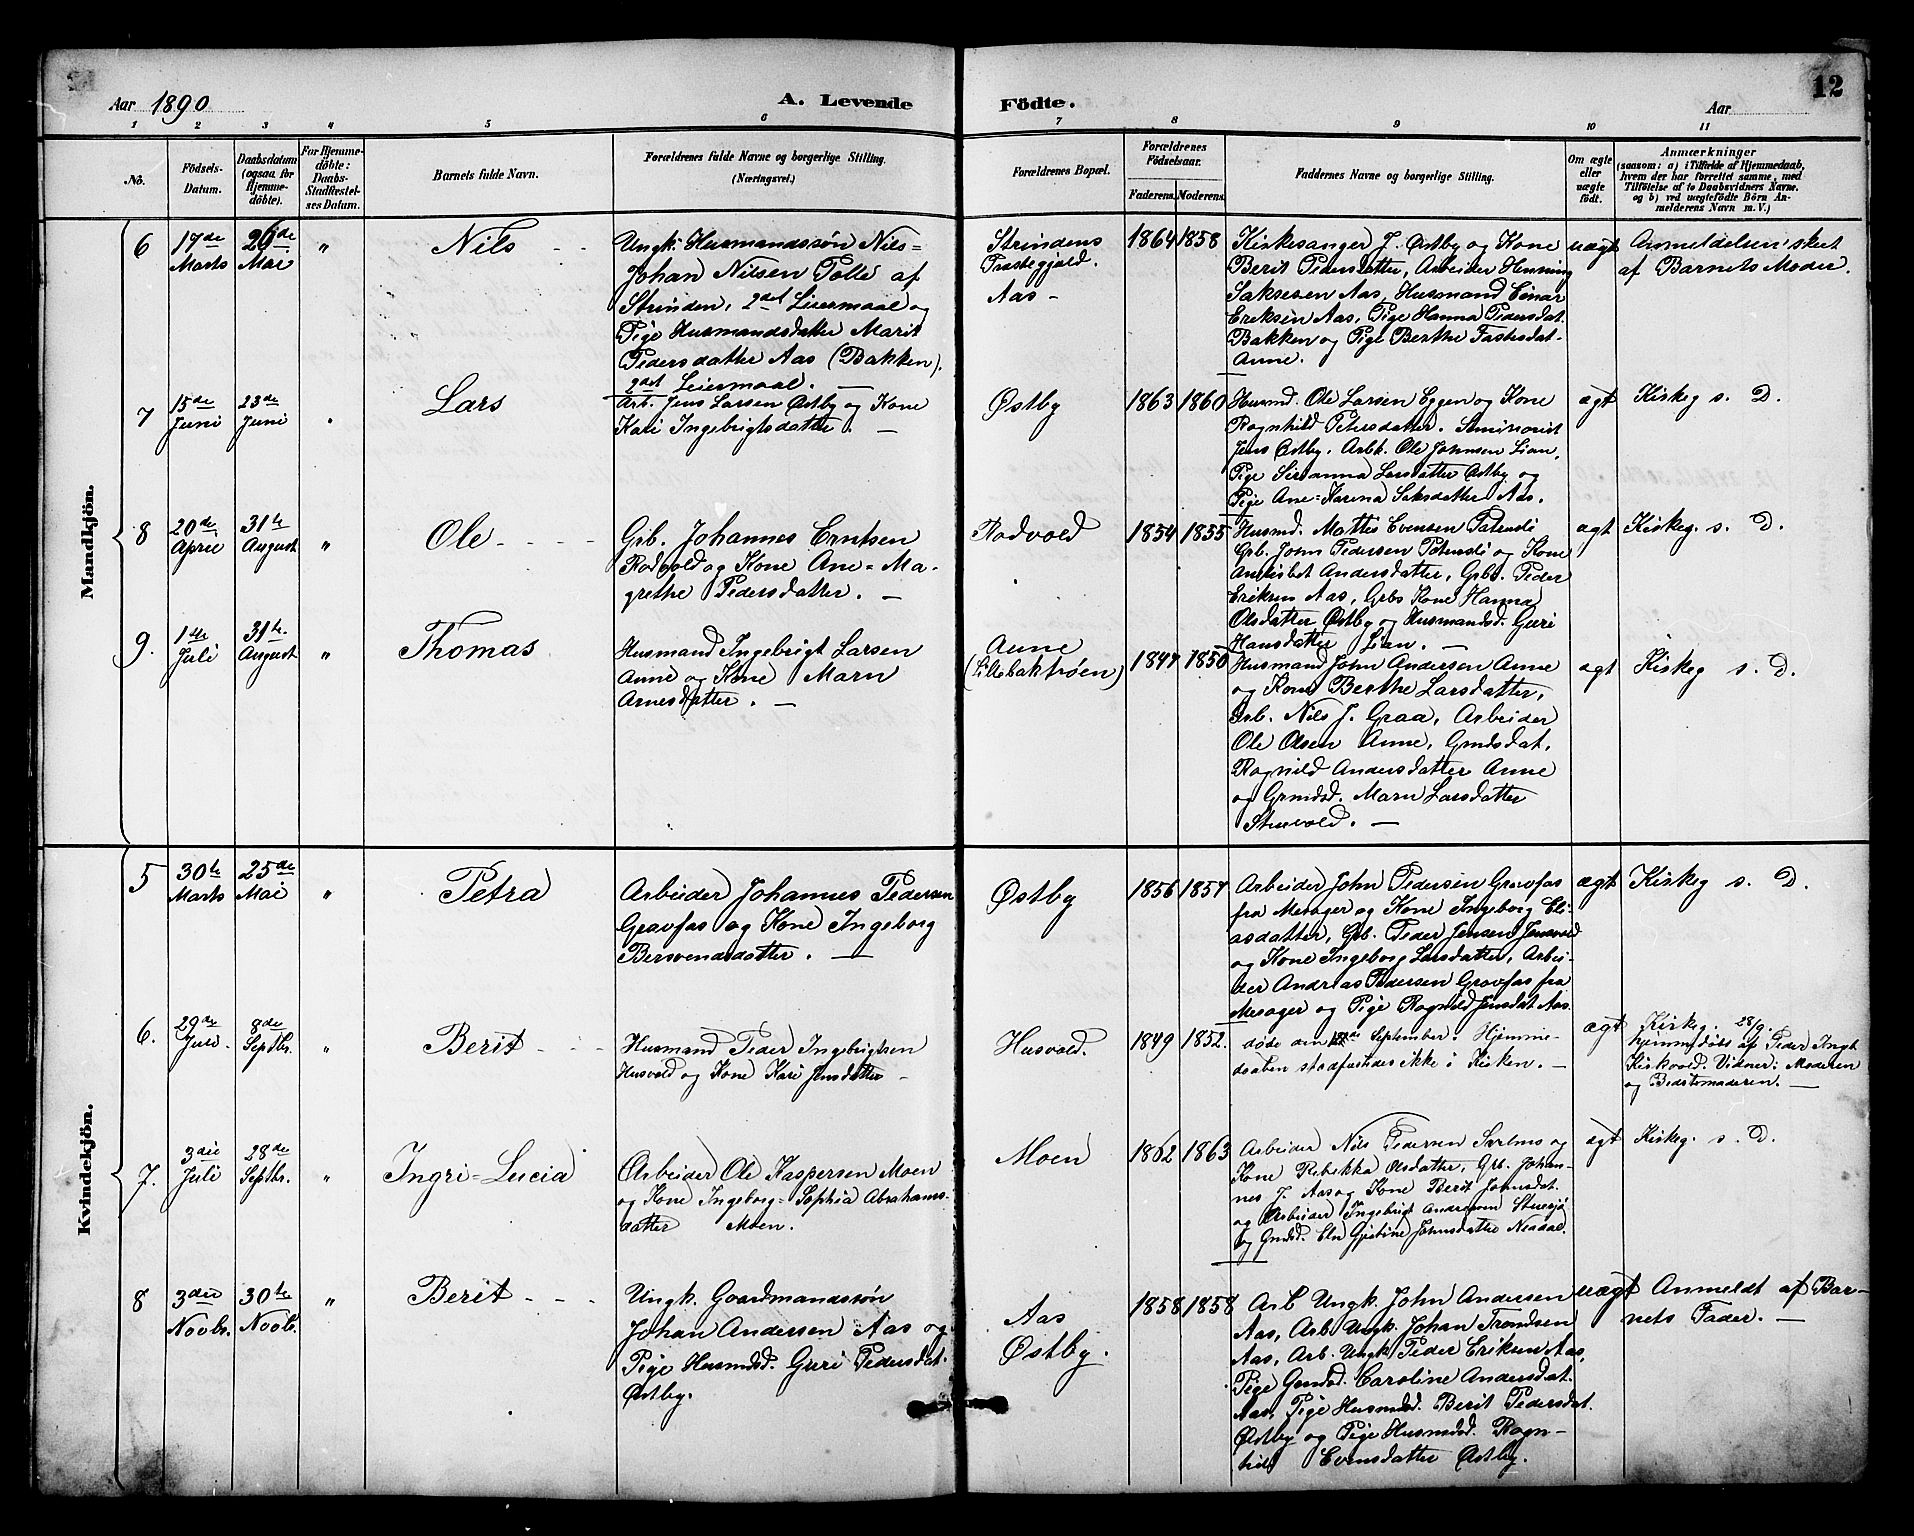 Aar 1890
A. Levende
Födte.
Aar
12
1 2 3 4 5 6 7 8 9 10 11
No.
Födsels-
Datum.
Daabsdatum
(ogsaa for
Hjemme-
döbte).
For Hjemme-
döbte:
Daabs-
Stadfæstel-
ses Datum.
Barnets fulde Navn.
Forældrenes fulde Navne og borgerlige Stilling.
(Næringsvei.)
Forældrenes Bopæl.
Forældrenes
Födselsaar.
Faderens. Moderens.
Faddernes Navne og borgerlige Stilling.
Om ægte
eller
uægte
födt.
Anmærkninger
(saasom: a) i Tilfælde af Hjemmedaab,
hvem der har forrettet samme, med
Tilföielse af to Daabsvidners Navne.
og b) ved uægtefödte Börn An-
melderens Navn m. V.)
Mandkjön.
6
17de
Marts
26de
Mai
"
Nils
Ungk. Husmandssøn Nils=
Johan Nilsen Tolle af
Strinden, 2det Leiermaal og
Pige Husmandsdatter Marit
Pedersdatter Aas (Bakken).
2det Leiermaal. —
Strindens
Præstegjæld.
Aas -
1864 1858
Kirkesanger J. Østby og Kone
Berit Pedersdatter, Arbeider Henning
Saksesen Aas, Husmand Einar
Eriksen Aas, Pige Hanna Pedersdat.
Bakken og Pige Berthe Fastesdat-
Aune.
uægt
Anmeldelsen skeet
af Barnets Moder.
7
15de
Juni
23de
Juni
Lars
Arb. Jens Larsen Østby og Kone
Kari Ingebrigtsdatter. —
Østby
1863 1860
Husmd. Ole Larsen Eggen og Kone
Ragnhild Petersdatter. Seminarist
Jens Østby. Arbk. Ole Johnsen Lian,
Pige Serianna Larsdatter Østby og
Pige Ane=Karina Saksdatter Aas.
ægt
Kirkeg s. D.
8
20de
April
31te
August
"
Ole
Grb. Johannes Erntsen
Rodvold og Kone Ane=Ma-
grethe Pedersdatter. —
Rodvold
1854 1855
Husmd. Mattis Evensen
Grb. John Pedersen og Kone
Andersdatter, Grbs. Peder
Eriksen Aas, Grbs Kone Hanna
Olsdatter Østby og Husmandsd. Guri
Hansdatter Lian. —
ægt
Kirkeg. s. D.
9.
1ste
Juli
31te.
August
"
Thomas
Husmand Ingebrigt Larsen
Aune og Kone Marn
Arnesdatter. —
Aune
(Lillebaktrøen)
1847 1850
Husmand John Andersen Aune
og Kone Berthe Larsdatter,
Arb. Nils J. Graa, Arbeider
Ole Olsen Aune, Gmdsdat.
Ragnild Andersdatter Aune
og Grmdsd. Marn Larsdatter
Stuevold. —
ægt
Kirkeg s. D.
Kvindekjön.
5
30te
Marts
25de
Mai
"
Petra
Arbeider Johannes Pedersen
Gravfas og Kone Ingeborg
Bersvendsdatter. —
Østby
1856 1857
Arbeider John Pedersen Gravfas
fra Merager og Kone Ingeborg Eli-
asdatter, Grb. Peder Jensen
og Kone Ingeborg Larsdatter, Arbei-
der Andreas Pedersen Gravfas fra
Merager og Pige Ragnild Jensdat Aas.
ægt
Kirkeg s. D.
6.
29de
Juli.
8de
Septbr.
"
Berit
Husmand Peder Ingebrigtsen
Husvold og Kone Kari Jensdatter —
Husvold.
1849 1852.
døde den September. Hjemme-
daaben stadfæstedes ikke i Kirken. —
ægt
Kirkeg. 28/9.
hjemmedøbt af Peder Ingb.
Kirkvold. Vidner: Moderen
og Bedstemoderen. —
7.
3die
Juli
28de
Septbr.
"
Ingri=Lucia
Arbeider Ole Kaspersen Moen
og Kone Ingeborg=Sophia Abrahams-
datter Moen.
Moen
1862 1863
Arbeider Nils Pedersen og
Kone Rebekka Olsdatter, Grb. Johan-
nes J. Aas og Kone Berit Johnsdat.
og Arbeider Ingebrigt Andreasen Stuesjø
og Gmdsd. Johnsdatter Neadal.
ægt
Kirkeg. s. D.
8
3die
Novbr.
30te
Novb.
"
Berit
Ungk. Gaardmandssøn
Johan Andersen Aas og
Pige Husmdsd. Guri Pedersdat.
Østby.
Aas
Østby.
1858 1858
Arb Ungk. John Andersen
Aas, Arb Ungk. Johan Trondsen
Aas, Arb. Ungk. Peder Eriksen Aas,
Pige Gmdsd. Caroline Andersdat.
Aas, Pige Husmdsd. Berit Pedersdat.
Østby og Pige Husmdsd. Ragn-
hild Evensdatter Østby.
uægt
Anmeldt af Bar-
nets Fader. —